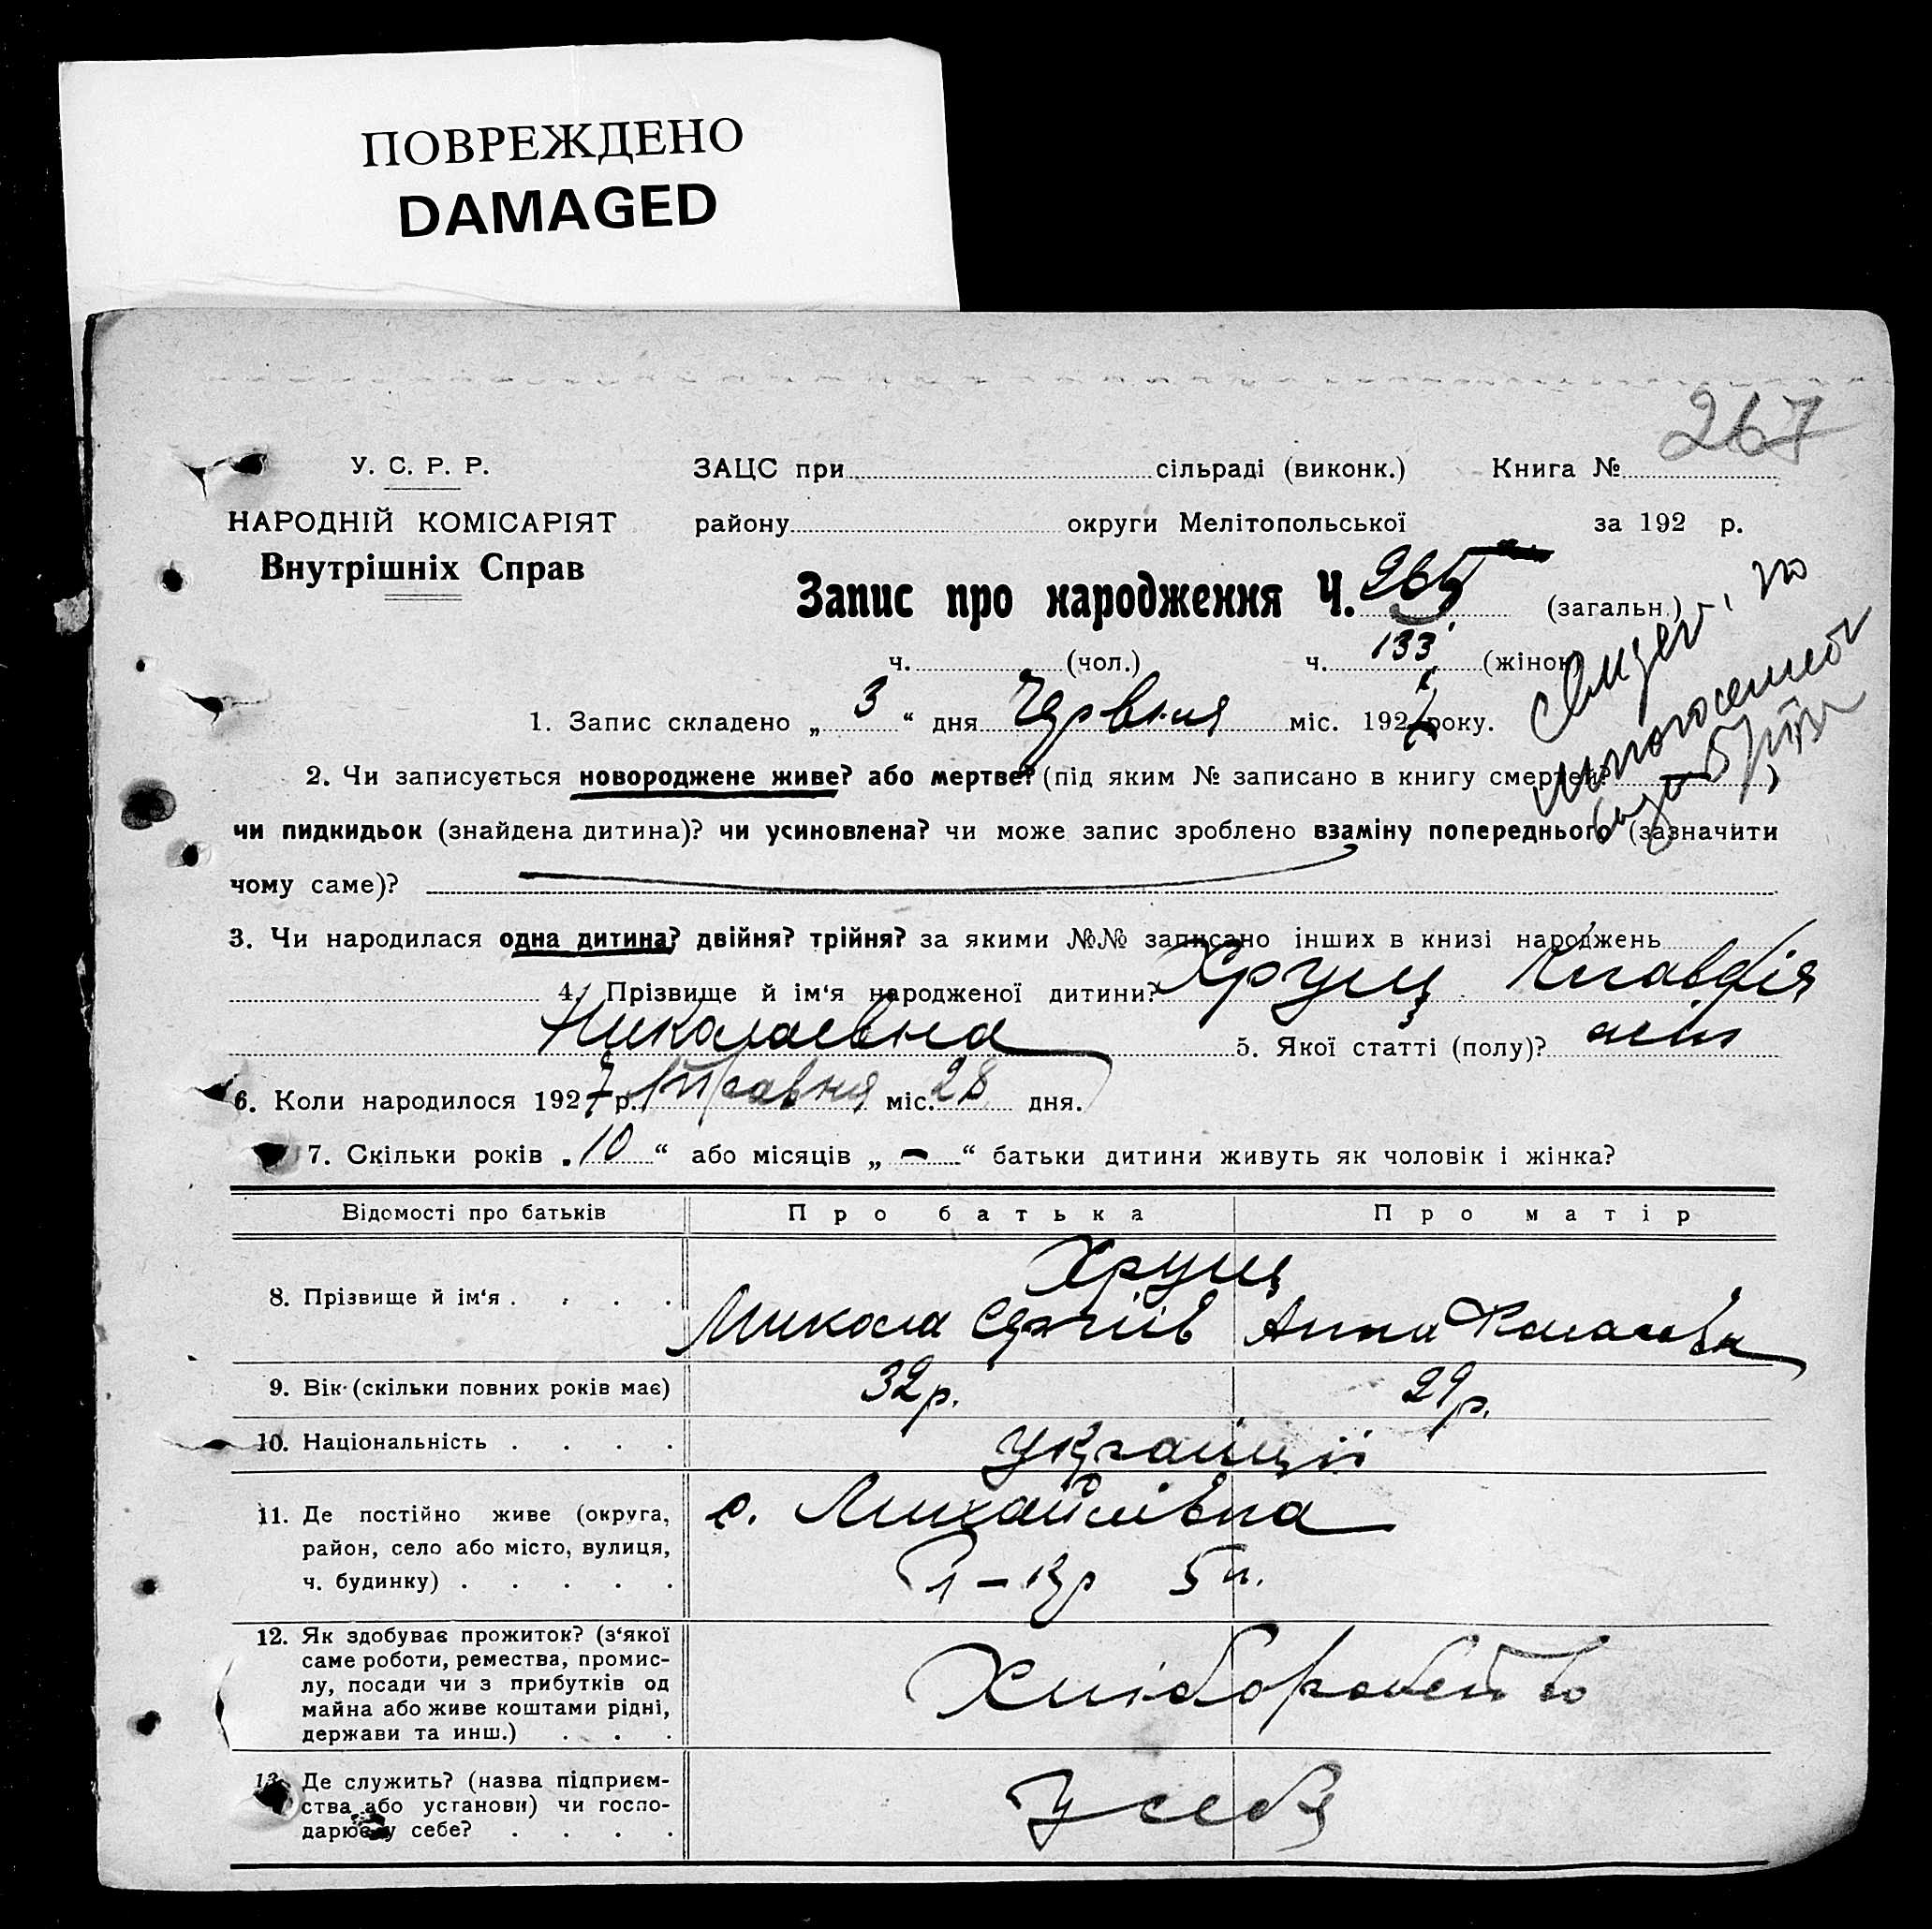 ПОВРЕЖДЕНО
DAMAGED
267
У. С. Р. Р.
НАРОДНІЙ КОМІСАРІЯТ
Внутрішніх Справ
ЗАЦС при сільраді (виконк.) Книга №
району округи Мелітопольської за 192 р.
Запис про народження Ч. 265 (загальн.)
ч. (чол.) ч. 133 (жінок
1. Запис складено „ 3 “ дня Червня міс. 1927 року.
2. Чи записується новороджене живе? або мертве? (під яким № записано в книгу смертей?
чи пидкидьок (знайдена дитина)? чи усиновлена? чи може запис зроблено взаміну попереднього (зазначити
чому саме)?
3. Чи народилася одна дитина? двійня? трійня? за якими №№ записано інших в книзі народжень
4. Прізвище й ім‘я народженої дитини? Хрущ Клавдія
Николаевна 5. Якої статті (полу)? жін
6. Коли народилося 1927 р. Травня міс. 28 дня.
7. Скільки років „ 10 “ або місяців „ – “ батьки дитини живуть як чоловік і жінка?
Відомості про батьків Про батька Про матір
Хрущ
8. Прізвище й ім‘я . . . . Микола Сергіів Анна
9. Вік (скільки повних років має) 32 р. 29 р.
10. Національність . . . . Українці
11. Де постійно живе (округа, с. Михайлівка
район, село або місто, вулиця,
ч. будинку) . . . . . 5
12. Як здобуває прожиток? (з‘якої
саме роботи, ремества, промис-
лу, посади чи з прибутків од Хліборобство
майна або живе коштами рідні,
держави та инш.) . . .
13. Де служить? (назва підприєм-
ства або установи) чи госпо- У себе
дарює у себе? . . . .